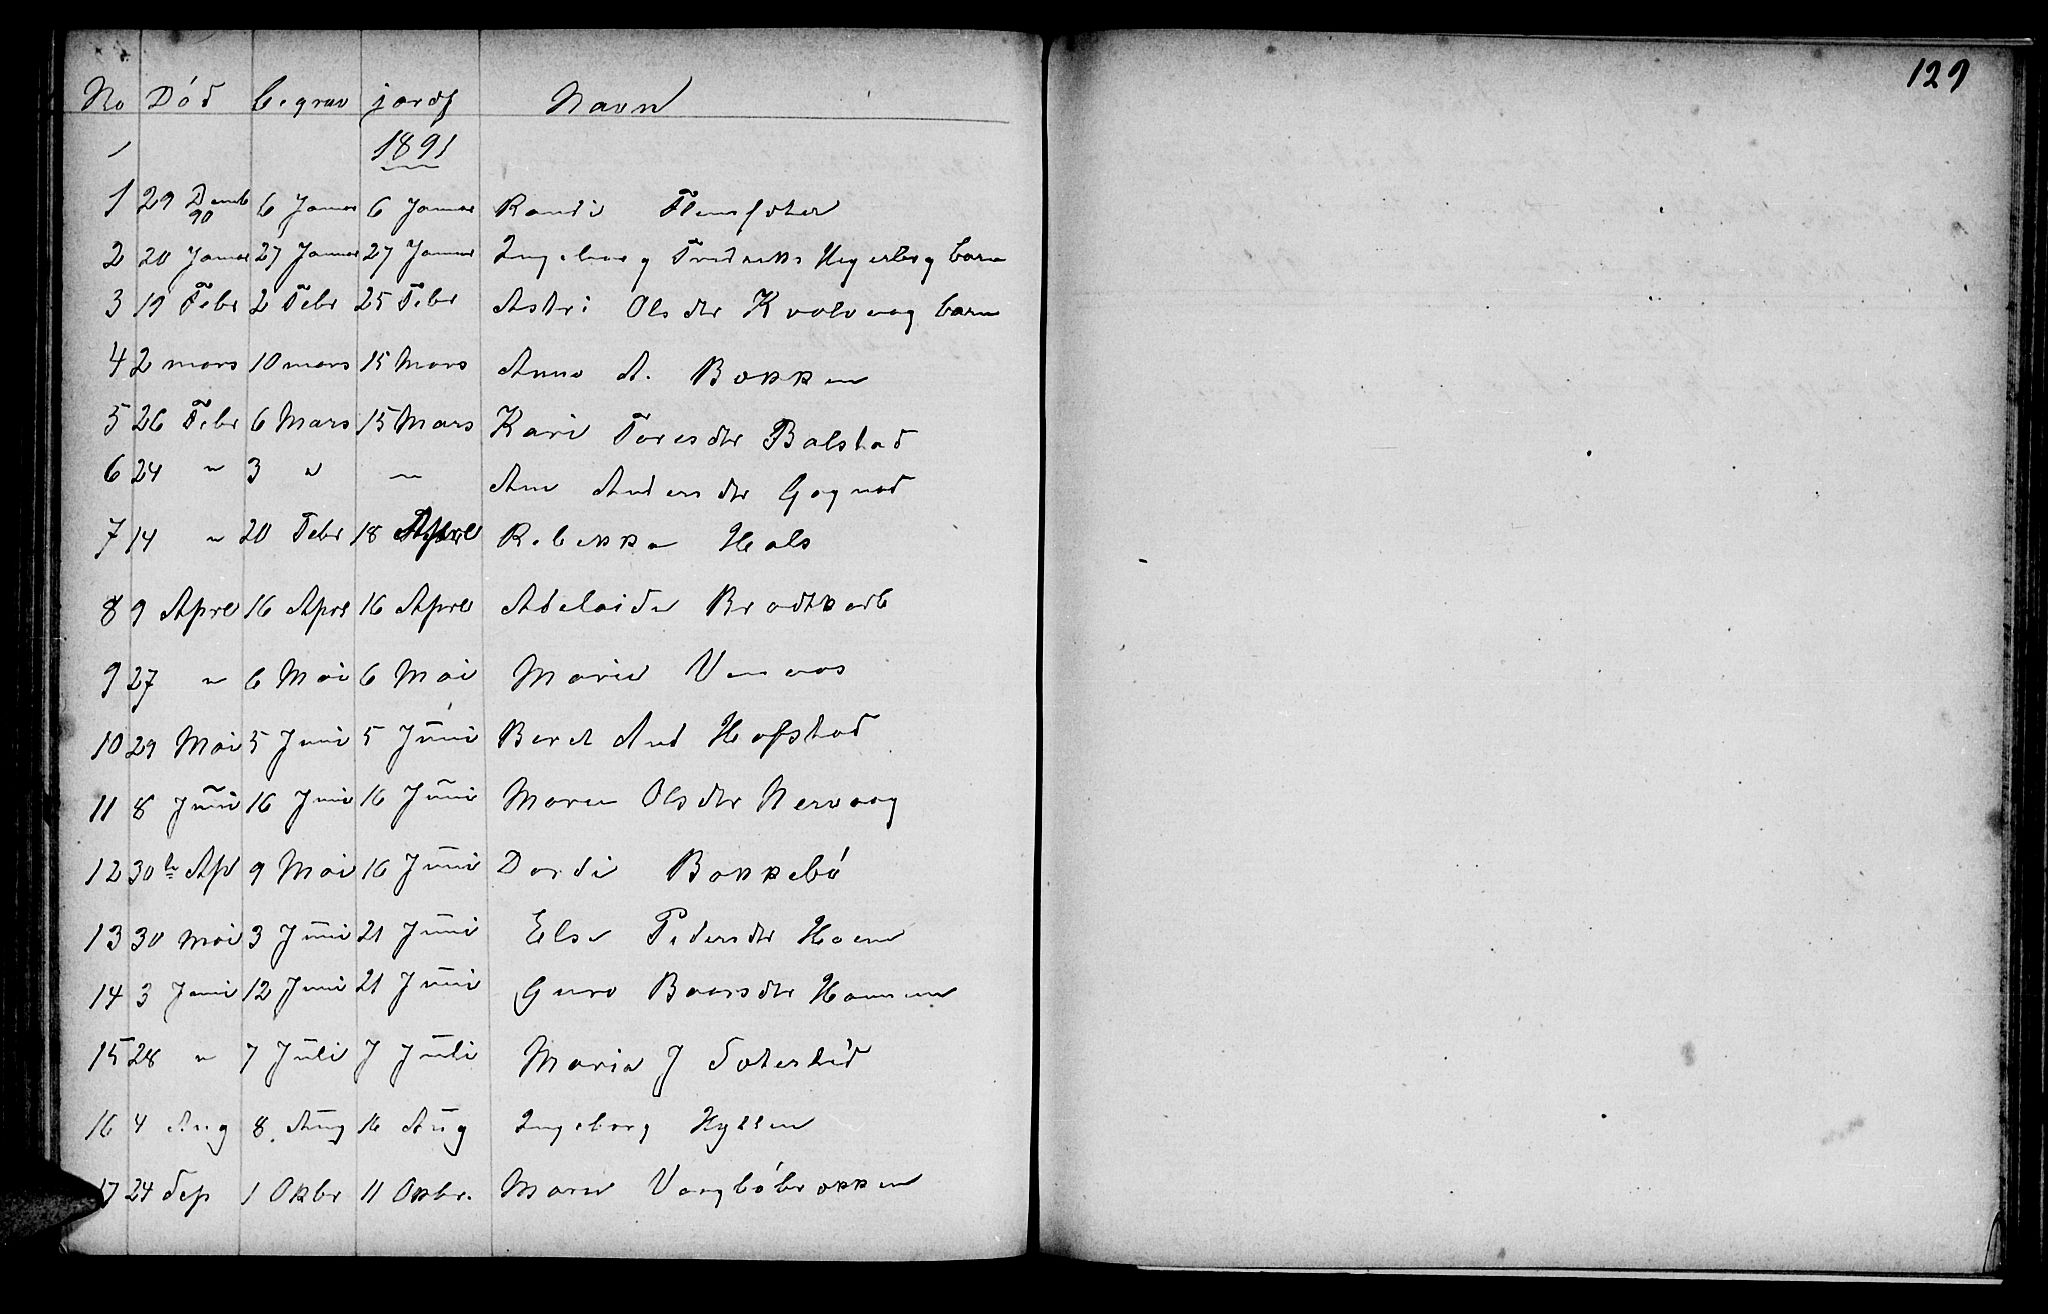 129
No Död begrav jordf Navn
1891
1 29 Decmb 90 6 Januar 6 Januar Randi
2 20 Januar 27 Januar 27 Januar Ingeborg Fredriks Hegerberg barn
3 19 Febr 2 Febr 25 Febr Astri Olsdtr Kvalvaag barn
4 2 mars 10 mars 15 Mars Anne A. Bakken
5 26 Febr 6 Mars 15 Mars Kari Toresdtr Balstad
6 24 " 3 " " Ane Andersdtr
7 14 " 20 Febr 18 April Rebekka Hals
8 9 April 16 April 16 April Adelaide Brodtkorb
9 27 " 6 Mai 6 Mai Marie
10 29 Mai 5 Juni 5 Juni Beret And Hofstad
11 8 Juni 16 Juni 16 Juni Maren Olsdtr Nervaag
12 30te Apl 9 Mai 16 Juni Dordi Bakkebö
13 30 Mai 3 Juni 21 Juni Else Pedersdtr Hoem
14 3 Juni 12 Juni 21 Juni Guro Baarsdtr
15 28 " 7 Juli 7 Juli Maria J
16 4 Aug 8 Aug 16 Aug Ingeborg Hyllen
17 24 Sep 1 Okbr 11 Okbr. Maren Vaagböbakken